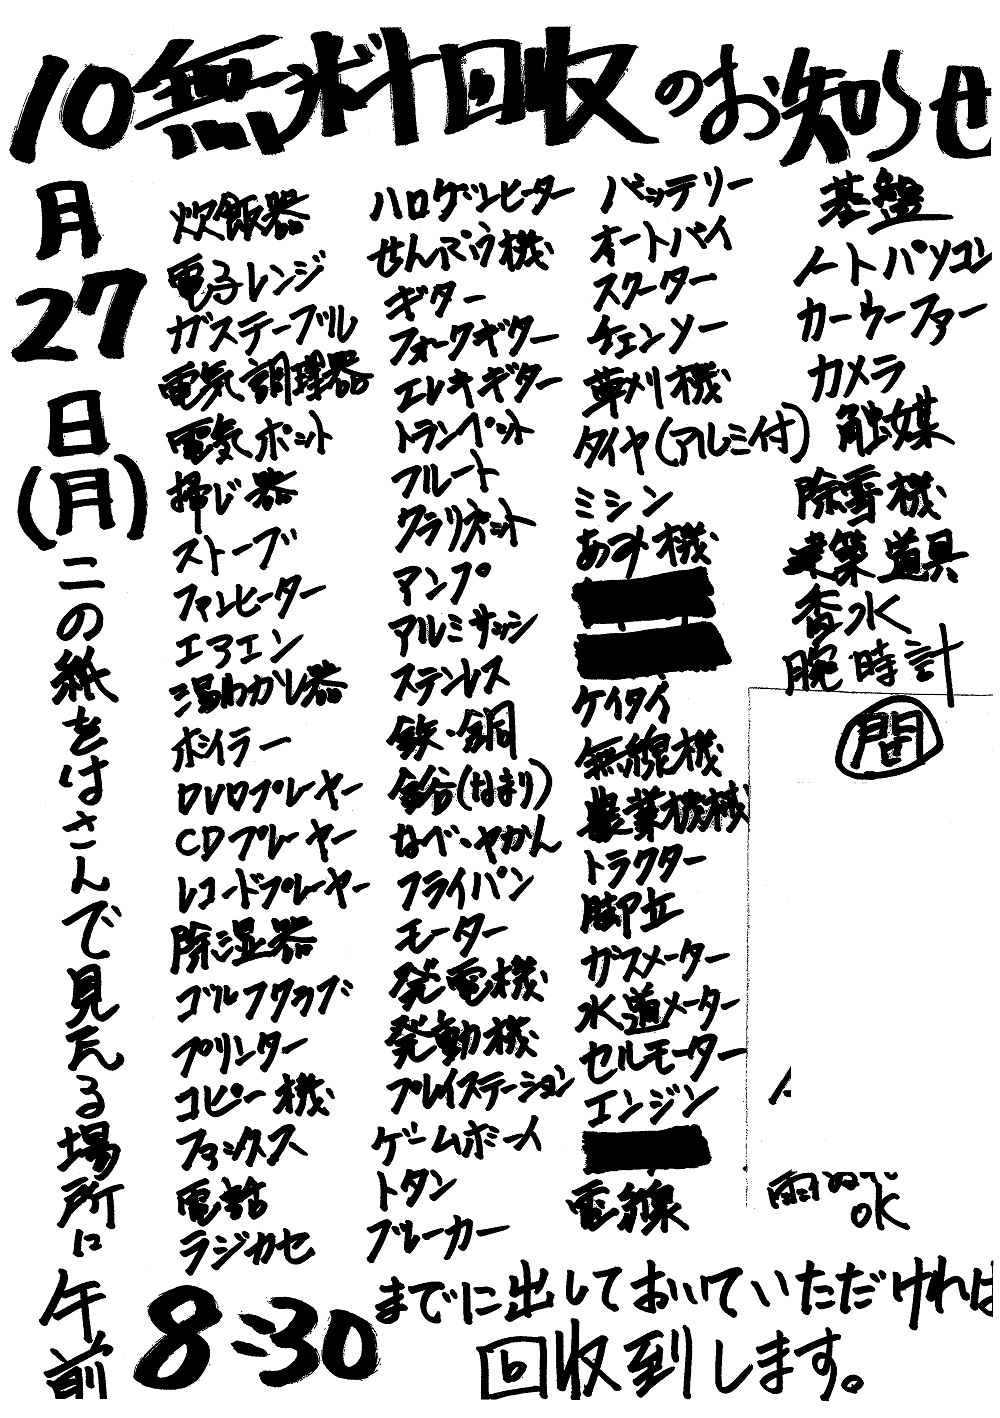 無料回収のお知らせ
10月27日(月)
この紙をはさんで見える場所に
午前8:30までに出しておいていただければ
回収到します。
炊飯器
電子レンジ
ガステーブル
電気調理器
電気ポット
掃じ器
ストーブ
ファンヒーター
エアコン
湯わかし器
ボイラー
DVDプレーヤー
CDプレーヤー
レコードプレーヤー
除湿器
ゴルフクラブ
プリンター
コピー機
ファックス
電話
ラジカセ
ハロゲンヒーター
せんぷう機
ギター
フォークギター
エレキギター
トランペット
フルート
クラリネット
アンプ
アルミサッシ
ステンレス
鉄・銅
鉛(なまり)
なべ・やかん
フライパン
モーター
発電機
発動機
プレイステーション
ゲームボーイ
トタン
ブレーカー
バッテリー
オートバイ
スクーター
チェンソー
草刈機
タイヤ(アルミ付)
ミシン
あみ機
ケイタイ
無線機
農業機械
トラクター
脚立
ガスメーター
水道メーター
セルモーター
エンジン
電線
基盤
ノートパソコン
カーウーファー
カメラ
触媒
除雪機
建築道具
香水
腕時計
問
雨
OK